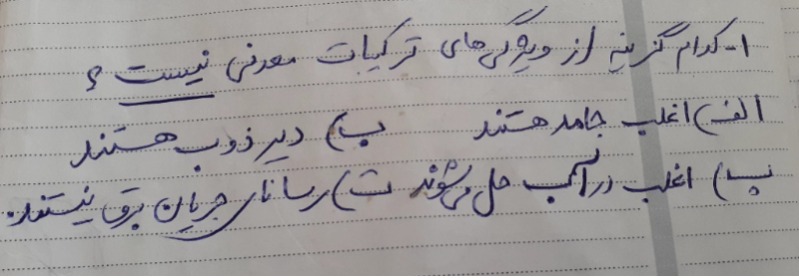 ۱- کدام گزینه از ویژگی های ترکیبات معدنی نیست؟
الف) اغلب جامد هستند ب) دیر ذوب هستند
پ) اغلب در آب حل می شوند ت) رسانای جریان برق نیستند.